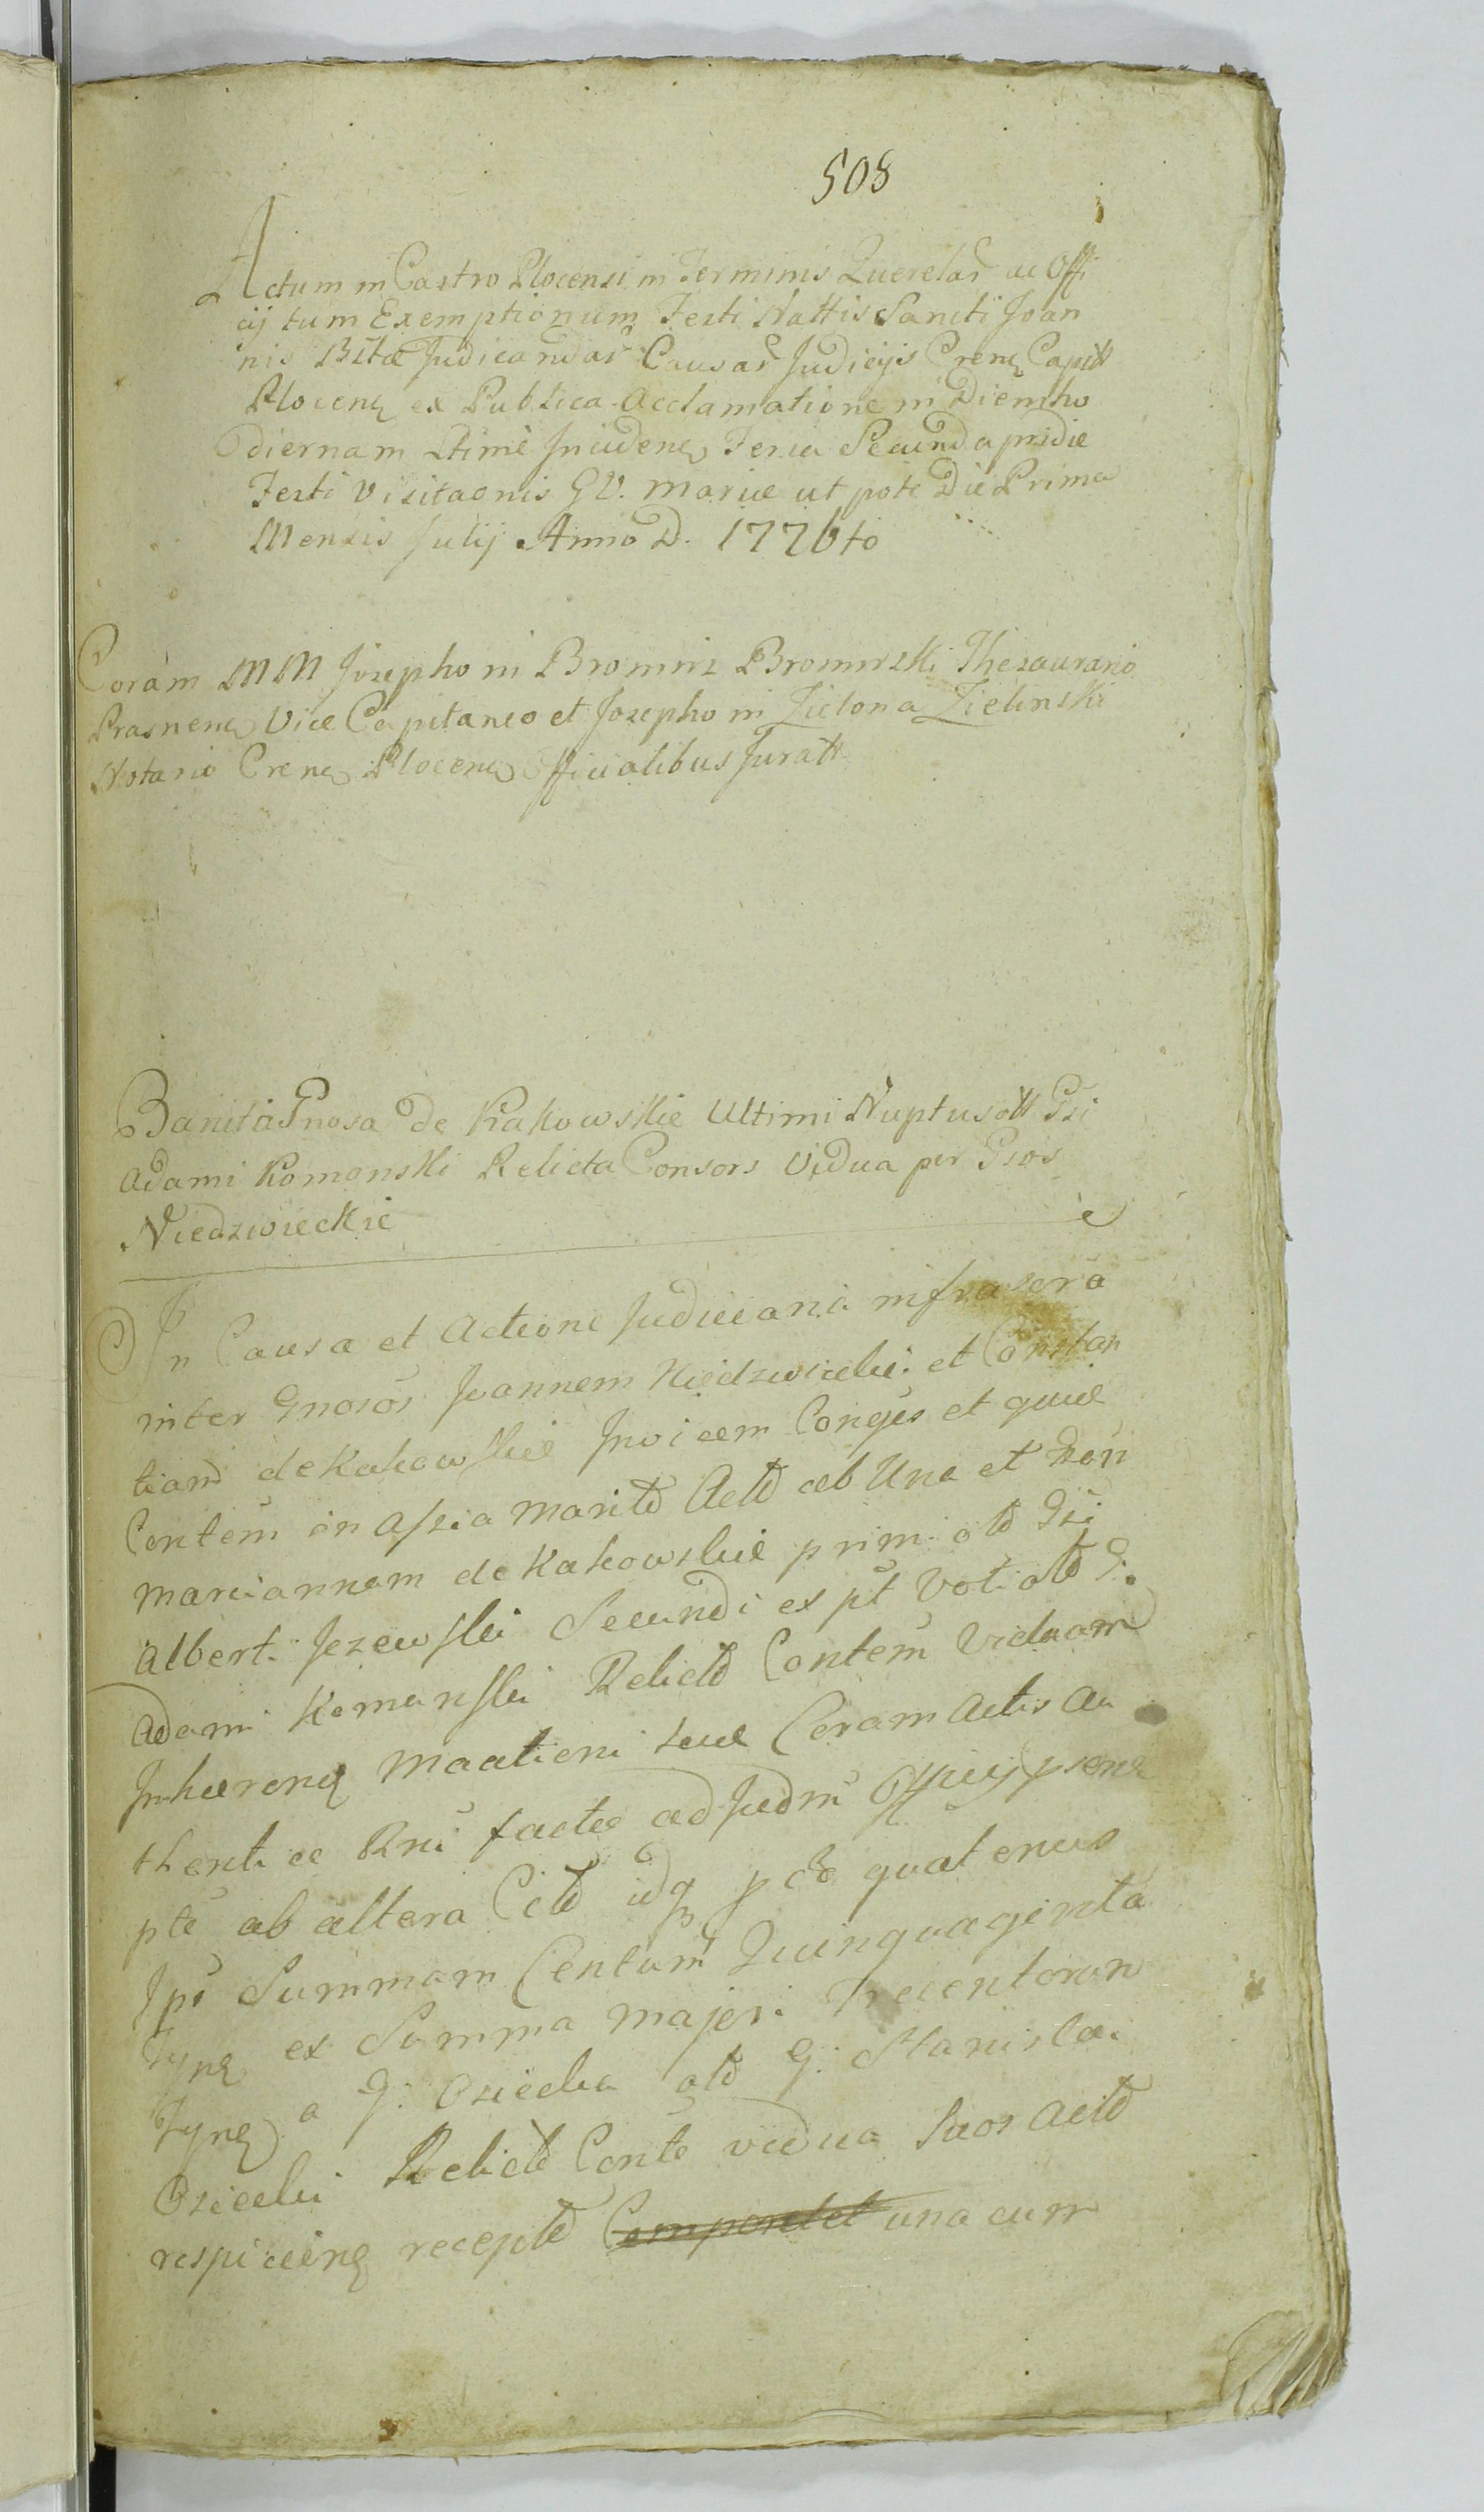 508
Actum in Castro Plocensi in Terminis Querelar ac Offi
cij tum Exemptionum Festi Nattis Sancti Joan
nis Bttæ Judicandar Causar Judicijs Crenq Capitt
Plocenq ex Publica Acclamatione in Diemho
diernam Ltimè Incidenq Feria Secunda pridie
Festi Visitaonis G V. Mariæ ut pote Die Prima
Mensis Julij Anno D. 1776to
Coràm MM Josepho in Bromirz Bromirski Thesaurario
Prasnenq Vice Capitaneo et Josepho in Zielona Zielinski
Notario Crenq Plocenq Officialibus Juratt
Banita Gnosa de Kakowskie Ultimi Nuptus ott Gsi
Adami Komonski Relicta Consors Vidua per Gsos
Niedzwieckie
In Causa et Actione Judiciaria infrascra
inter Gnosos Joannem Niedzwiecki et Constan
tiam de Kakowskie Invicem Conges et quie
Contem in Assia Maritd Actd ab Una et Gson
Mariannam de Kakowskie primi otd Gsi
Alberti Jezewski Secundi ex pt Voti otd G.
Adami Komanski Relictd Contem Viduam
Inhærenq Maationi suæ Coram Actis Au
thentice Rni factæ ad Judm Officij psens
pte ab altera Citd idq p eo quatenus
Ipe Summam Centum Quinquaginta
Tynq ex Summa majori Trecentorum
Tynq a G: Osiecka otd G: Stanislai
Osiecki Relictd Conte vidua Suos Actd
respicienq receptd Comportet una cum